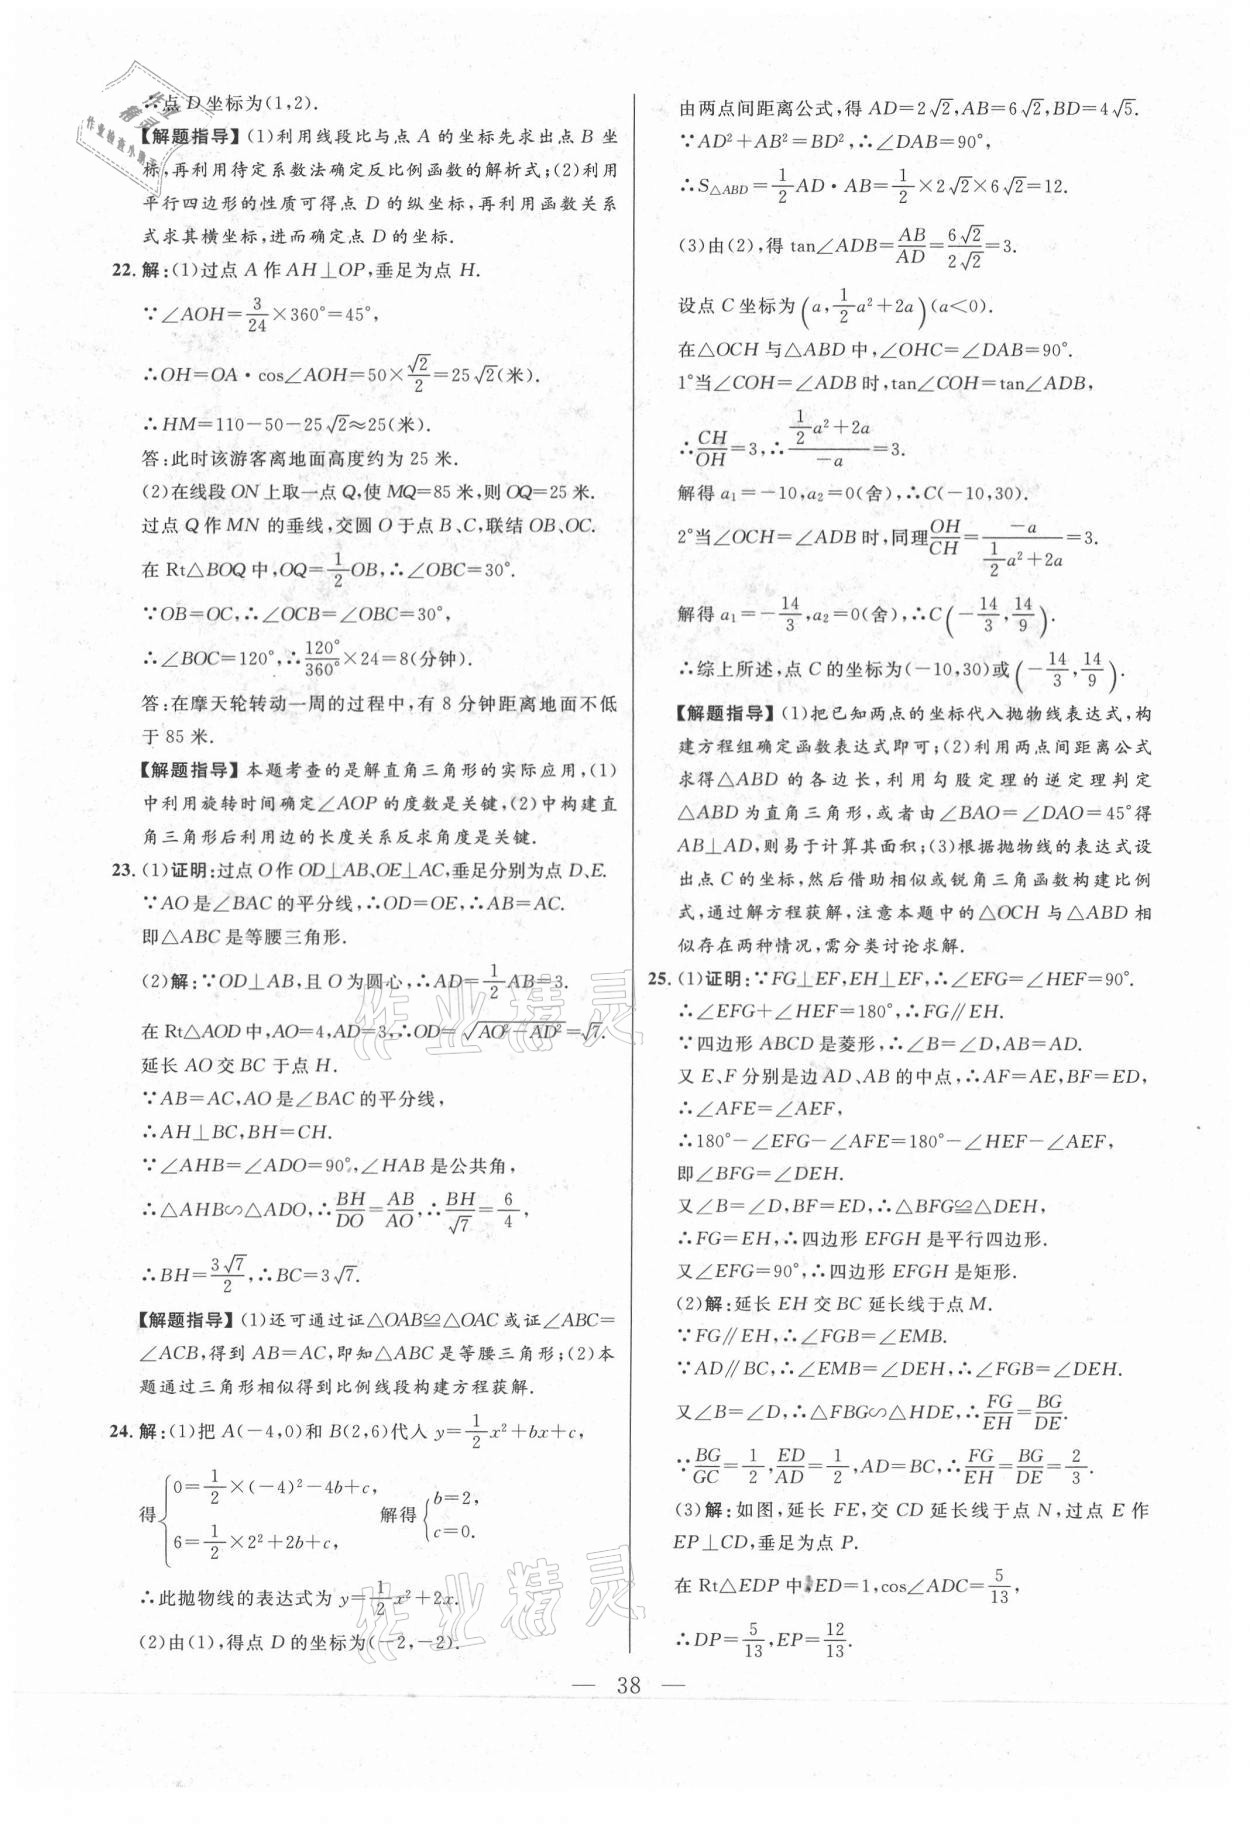 ∴点 D 坐标为(1,2).
【解题指导】(1)利用线段比与点 A 的坐标先求出点 B 坐
标,再利用待定系数法确定反比例函数的解析式;(2)利用
平行四边形的性质可得点 D 的纵坐标,再利用函数关系
式求其横坐标,进而确定点 D 的坐标.
22. 解:(1)过点 A 作 AH⊥OP,垂足为点 H.
∵∠AOH=3/24×360°=45°,
∴OH=OA·cos∠AOH=50×√2/2=25√2(米).
∴HM=110-50-25√2≈25(米).
答:此时该游客离地面高度约为 25 米.
(2)在线段 ON 上取一点 Q,使 MQ=85 米,则 OQ=25 米.
过点 Q 作 MN 的垂线,交圆 O 于点 B、C,联结 OB、OC.
在 Rt△BOQ 中,OQ=1/2OB,∴∠OBC=30°.
∵OB=OC,∴∠OCB=∠OBC=30°,
∴∠BOC=120°,∴120°/360°×24=8(分钟).
答:在摩天轮转动一周的过程中,有 8 分钟距离地面不低
于 85 米.
【解题指导】本题考查的是解直角三角形的实际应用,(1)
中利用旋转时间确定∠AOP 的度数是关键,(2)中构建直
角三角形后利用边的长度关系反求角度是关键.
23. (1)证明:过点 O 作 OD⊥AB、OE⊥AC,垂足分别为点 D、E.
∵AO 是∠BAC 的平分线,∴OD=OE,∴AB=AC.
即△ABC 是等腰三角形.
(2)解:∵OD⊥AB,且 O 为圆心,∴AD=1/2AB=3.
在 Rt△AOD 中,AO=4,AD=3,∴OD=√(AO²-AD²)=√7.
延长 AO 交 BC 于点 H.
∵AB=AC,AO 是∠BAC 的平分线,
∴AH⊥BC,BH=CH.
∵∠AHB=∠ADO=90°,∠HAB 是公共角,
∴△AHB∽△ADO,∴BH/DO=AB/AO,∴BH/√7=6/4,
∴BH=3√7/2,∴BC=3√7.
【解题指导】(1)还可通过证△OAB≌△OAC 或证∠ABC=
∠ACB,得到 AB=AC,即知△ABC 是等腰三角形;(2)本
题通过三角形相似得到比例线段构建方程获解.
24. 解:(1)把 A(-4,0)和 B(2,6)代入 y=1/2x²+bx+c,
得{0=1/2×(-4)²-4b+c, 6=1/2×2²+2b+c, 解得{b=2, c=0.
∴此抛物线的表达式为 y=1/2x²+2x.
(2)由(1),得点 D 的坐标为(-2,-2).
由两点间距离公式,得 AD=2√2,AB=6√2,BD=4√5.
∵AD²+AB²=BD²,∴∠DAB=90°,
∴S△ABD=1/2AD·AB=1/2×2√2×6√2=12.
(3)由(2),得 tan∠ADB=AB/AD=6√2/2√2=3.
设点 C 坐标为(a,1/2a²+2a)(a<0).
在△OCH 与△ABD 中,∠OHC=∠DAB=90°.
1°当∠COH=∠ADB 时,tan∠COH=tan∠ADB,
∴CH/OH=3,∴(1/2a²+2a)/(-a)=3.
解得 a₁=-10,a₂=0(舍),∴C(-10,30).
2°当∠OCH=∠ADB 时,同理OH/CH=-a/(1/2a²+2a)=3.
解得 a₁=-14/3,a₂=0(舍),∴C(-14/3,14/9).
∴综上所述,点 C 的坐标为(-10,30)或(-14/3,14/9).
【解题指导】(1)把已知两点的坐标代入抛物线表达式,构
建方程组确定函数表达式即可;(2)利用两点间距离公式
求得△ABD 的各边长,利用勾股定理的逆定理判定
△ABD 为直角三角形,或者由∠BAO=∠DAO=45°得
AB⊥AD,则易于计算其面积;(3)根据抛物线的表达式设
出点 C 的坐标,然后借助相似或锐角三角函数构建比例
式,通过解方程获解,注意本题中的△OCH 与△ABD 相
似存在两种情况,需分类讨论求解.
25. (1)证明:∵FG⊥EF,EH⊥EF,∴∠EFG=∠HEF=90°.
∴∠EFG+∠HEF=180°,∴FG∥EH.
∵四边形 ABCD 是菱形,∴∠B=∠D,AB=AD.
又 E、F 分别是边 AD、AB 的中点,∴AF=AE,BF=ED,
∴∠AFE=∠AEF,
∴180°-∠EFG-∠AFE=180°-∠HEF-∠AEF,
即∠BFG=∠DEH.
又∠B=∠D,BF=ED,∴△BFG≌△DEH,
∴FG=EH,∴四边形 EFGH 是平行四边形.
又∠EFG=90°,∴四边形 EFGH 是矩形.
(2)解:延长 EH 交 BC 延长线于点 M.
∵FG∥EH,∴∠FGB=∠EMB.
∵AD∥BC,∴∠EMB=∠DEH,∴∠FGB=∠DEH.
又∠B=∠D,∴△FBG∽△HDE,∴FG/EH=BG/DE.
∵BG/GC=1/2,ED/AD=1/2,AD=BC,∴FG/EH=BG/DE=2/3.
(3)解:如图,延长 FE,交 CD 延长线于点 N,过点 E 作
EP⊥CD,垂足为点 P.
在 Rt△EDP 中,ED=1,cos∠ADC=5/13,
∴DP=5/13,EP=12/13.
— 38 —
作业
精灵
作业检查小助手
作业精灵
作业精灵